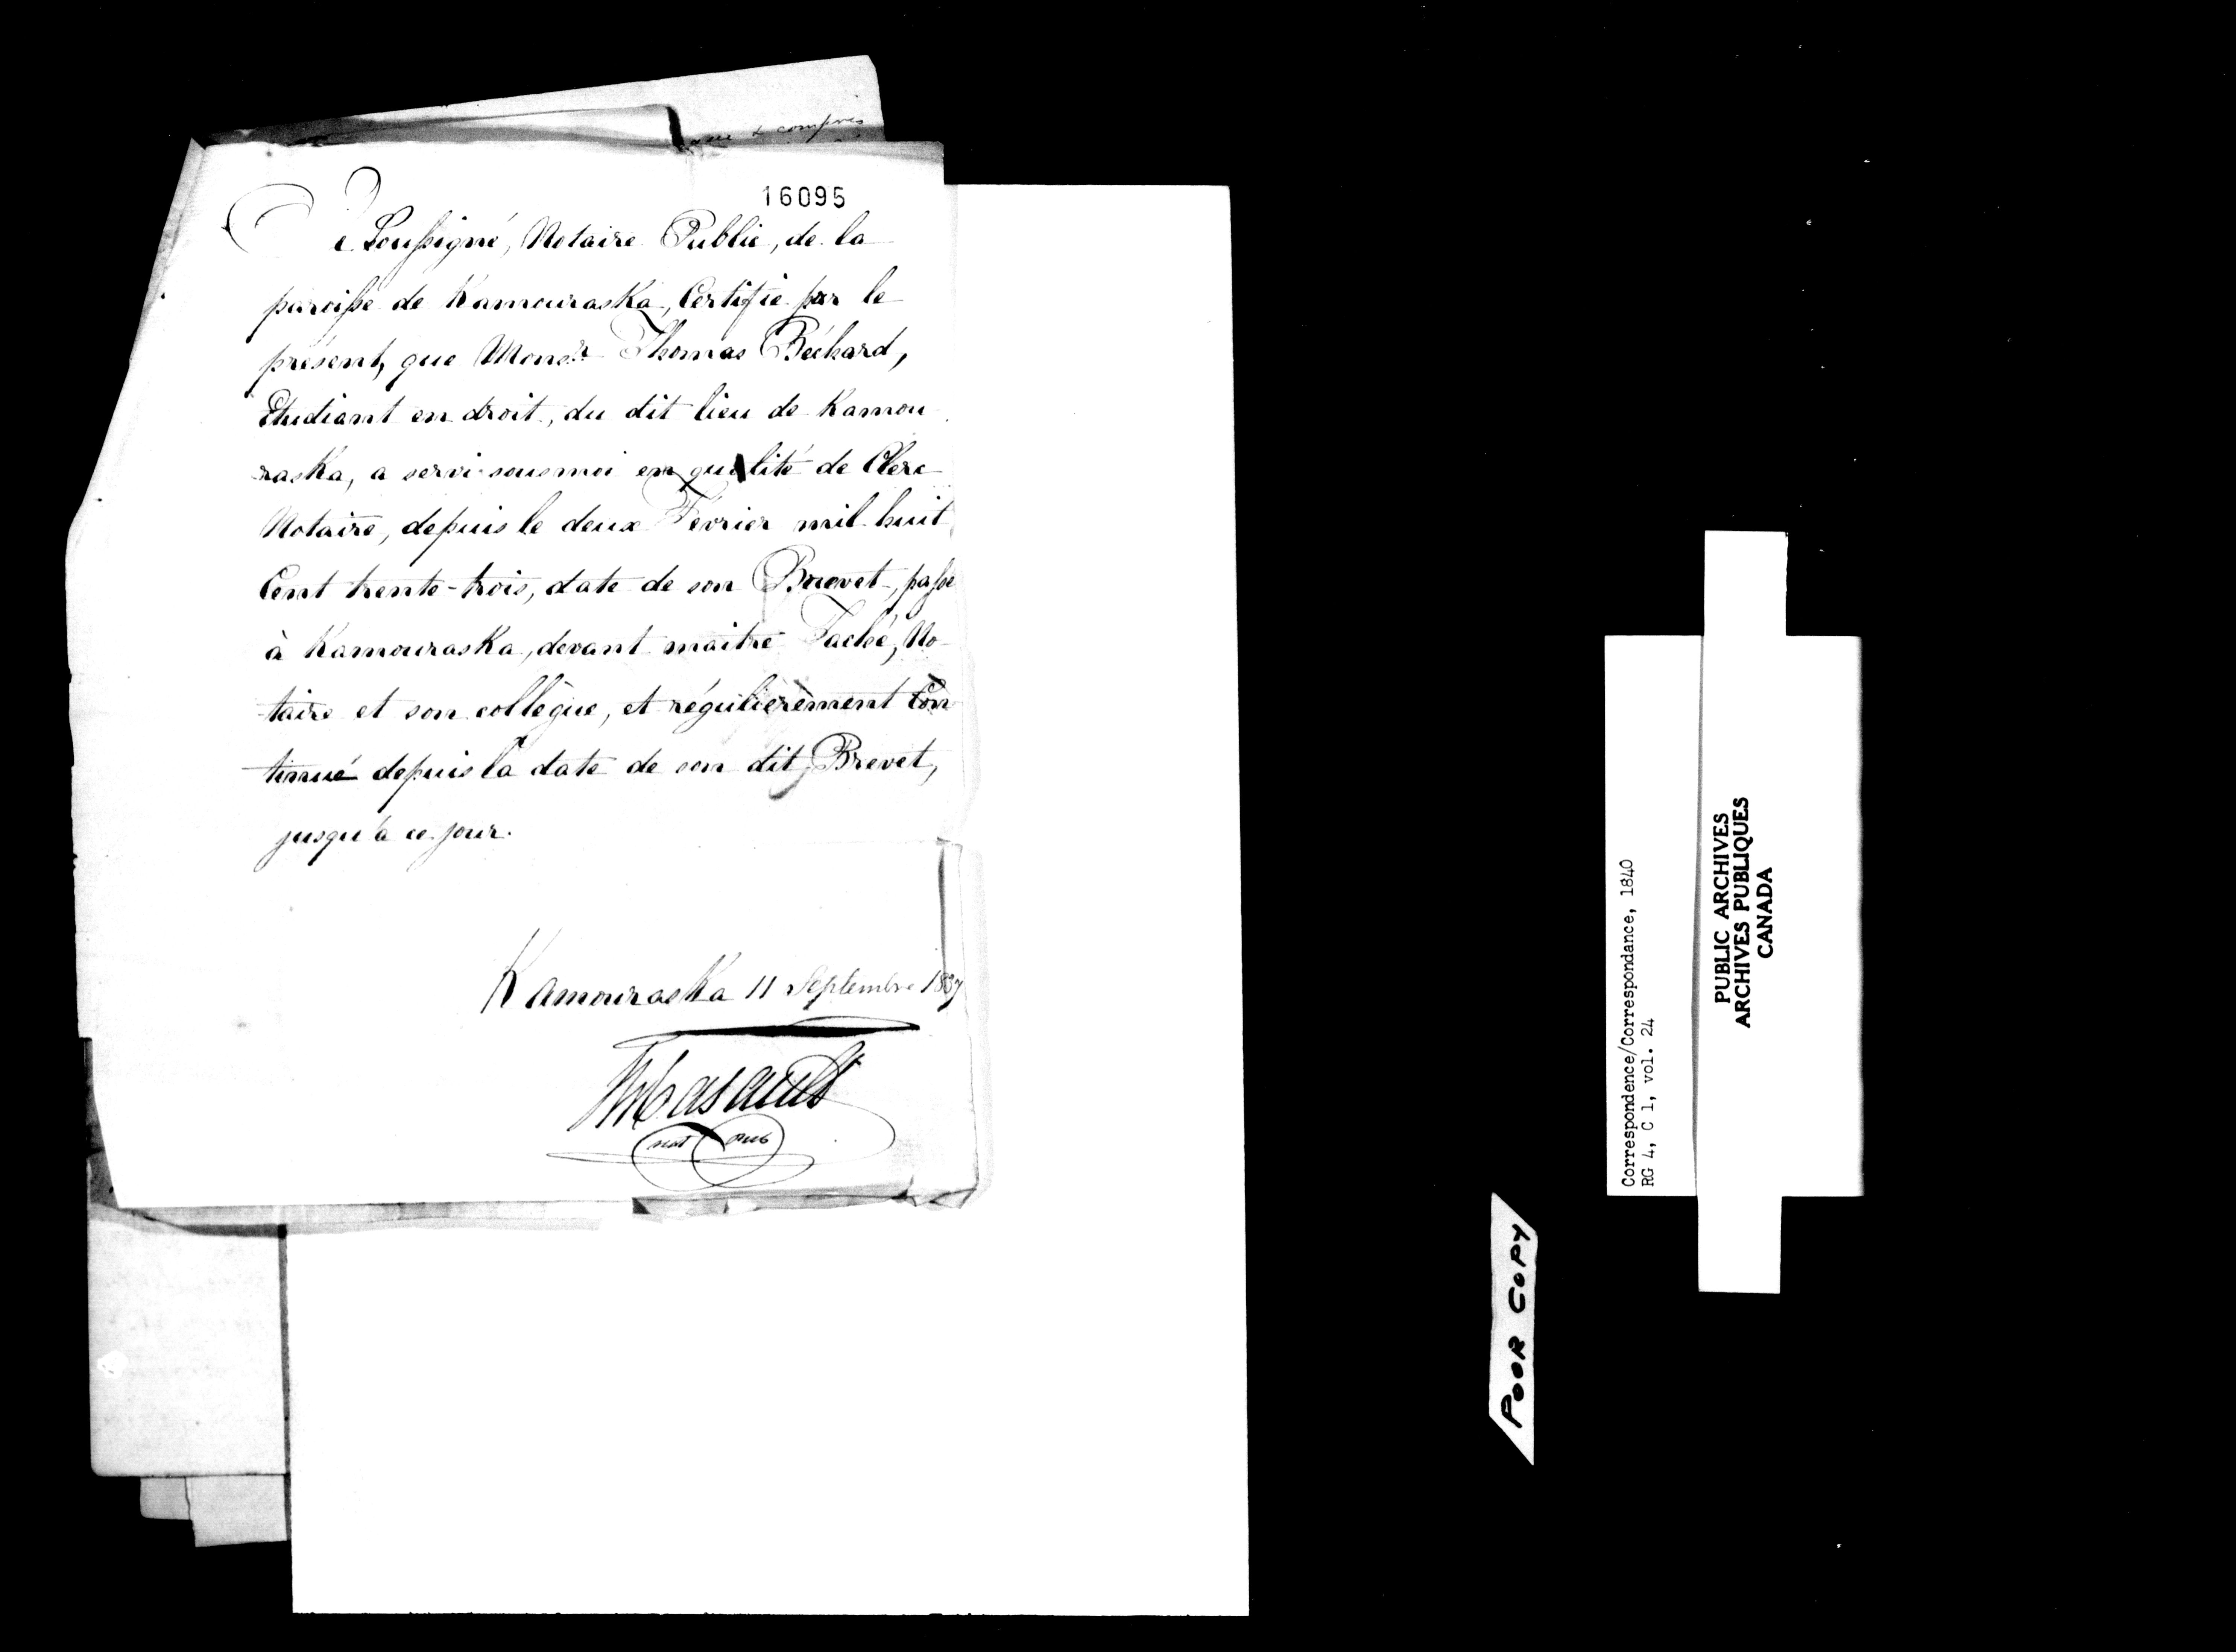 & compris
16095
Je Soussigné, Notaire Public, de la
paroisse de Kamouraska, Certifie par le
présent, que Monsr. Thomas Béchard,
Etudiant en droit, du dit lieu de Kamou-
raska, a servi sous moi en qualité de Clerc
Notaire, depuis le deux Fevrier mil huit
Cent trente-trois, date de son Brevet, passé
à Kamouraska, devant maitre Taché, No-
taire et son collègue, et régulièrement Con-
tinué depuis la date de son dit Brevet,
jusqu'à ce jour.
Kamouraska 11 Septembre 1837
not pub
Correspondence/Correspondance, 1840
RG 4, C 1, vol. 24
PUBLIC ARCHIVES
ARCHIVES PUBLIQUES
CANADA
POOR COPY